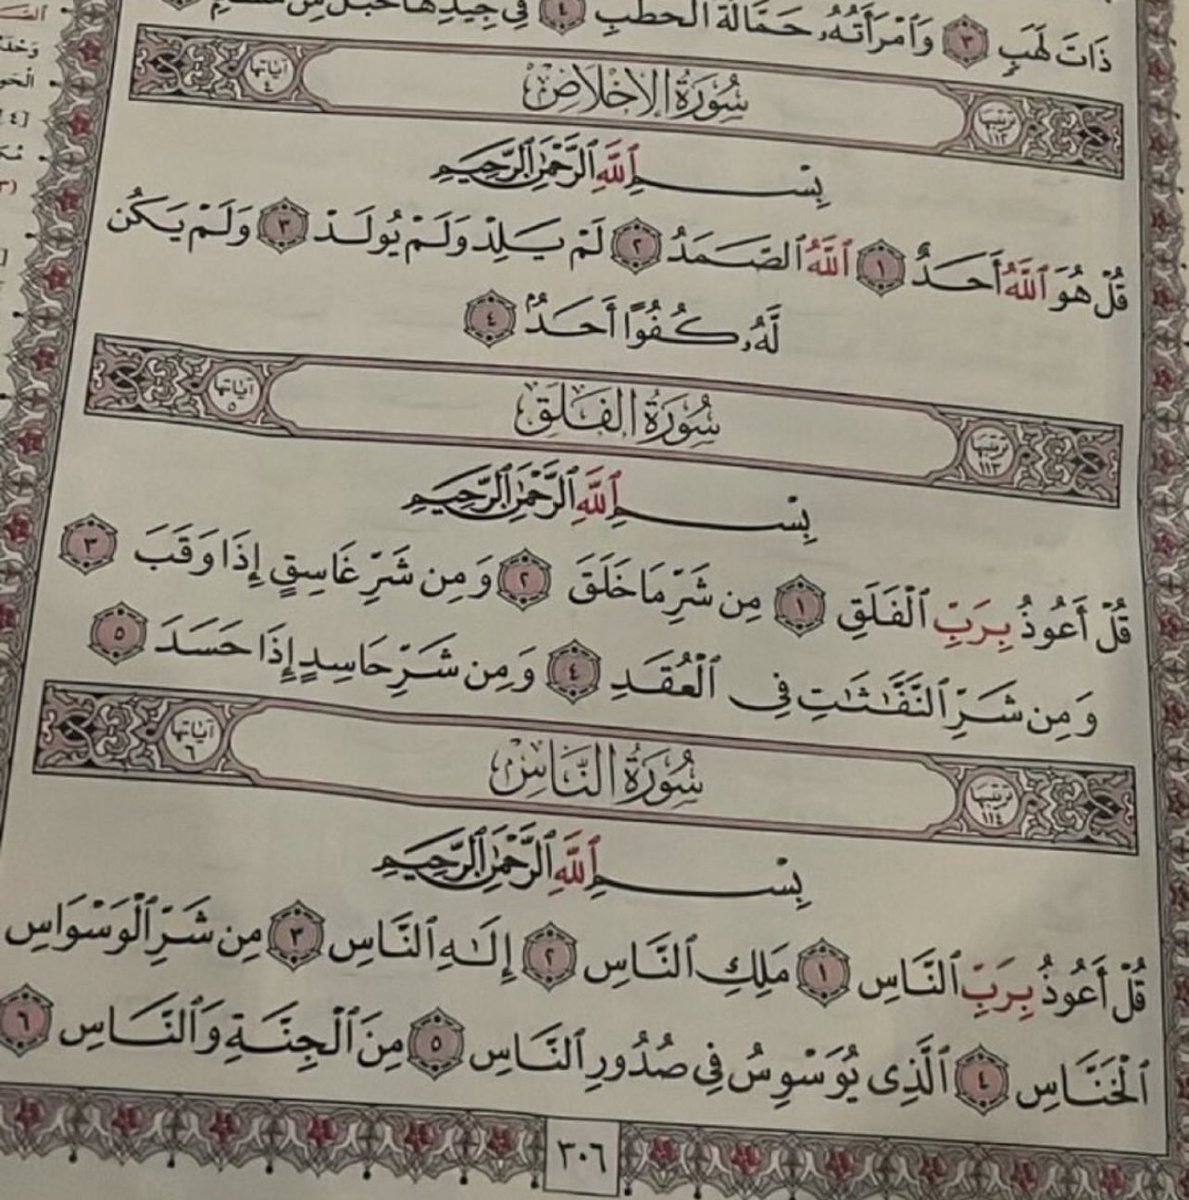 ذَاتَ لَهَبٍ ٣ وَٱمْرَأَتُهُۥ حَمَّالَةَ ٱلْحَطَبِ ٤ فِى جِيدِهَا حَبْلٌ مِّن
سُورَةُ الإِخْلَاصِ
ترتيبها ١١٢
آياتها ٤
بِسْمِ ٱللَّهِ ٱلرَّحْمَٰنِ ٱلرَّحِيمِ
قُلْ هُوَ ٱللَّهُ أَحَدٌ ١ ٱللَّهُ ٱلصَّمَدُ ٢ لَمْ يَلِدْ وَلَمْ يُولَدْ ٣ وَلَمْ يَكُن
لَّهُۥ كُفُوًا أَحَدٌۢ ٤
سُورَةُ الفَلَقِ
ترتيبها ١١٣
آياتها ٥
بِسْمِ ٱللَّهِ ٱلرَّحْمَٰنِ ٱلرَّحِيمِ
قُلْ أَعُوذُ بِرَبِّ ٱلْفَلَقِ ١ مِن شَرِّ مَا خَلَقَ ٢ وَمِن شَرِّ غَاسِقٍ إِذَا وَقَبَ ٣
وَمِن شَرِّ ٱلنَّفَّٰثَٰتِ فِى ٱلْعُقَدِ ٤ وَمِن شَرِّ حَاسِدٍ إِذَا حَسَدَ ٥
سُورَةُ النَّاسِ
ترتيبها ١١٤
آياتها ٦
بِسْمِ ٱللَّهِ ٱلرَّحْمَٰنِ ٱلرَّحِيمِ
قُلْ أَعُوذُ بِرَبِّ ٱلنَّاسِ ١ مَلِكِ ٱلنَّاسِ ٢ إِلَٰهِ ٱلنَّاسِ ٣ مِن شَرِّ ٱلْوَسْوَاسِ
ٱلْخَنَّاسِ ٤ ٱلَّذِى يُوَسْوِسُ فِى صُدُورِ ٱلنَّاسِ ٥ مِنَ ٱلْجِنَّةِ وَٱلنَّاسِ ٦
٣٠٦